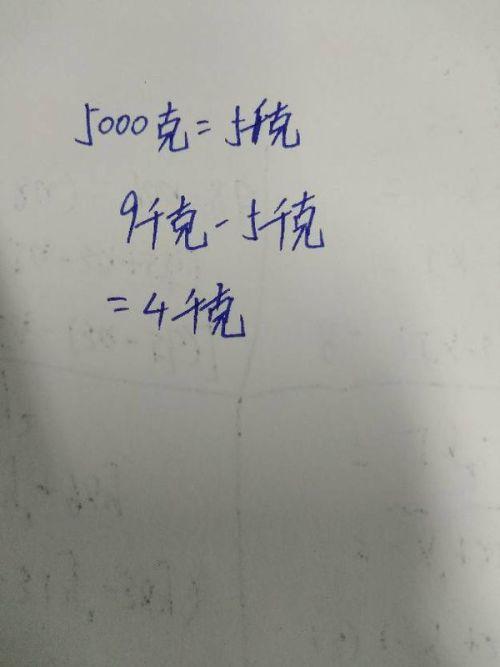 5000克=5千克
9千克-5千克
=4千克